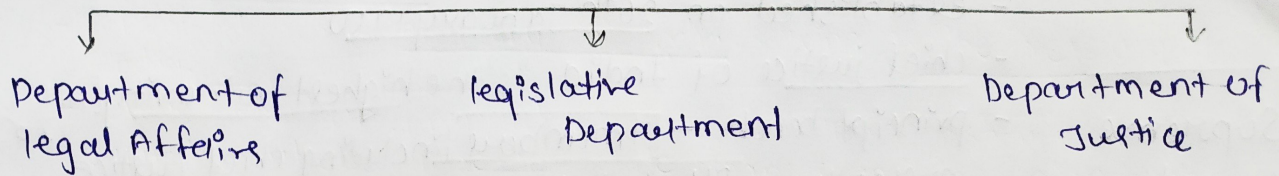 Department of
legal Affairs
legislative
Department
Department of
Justice